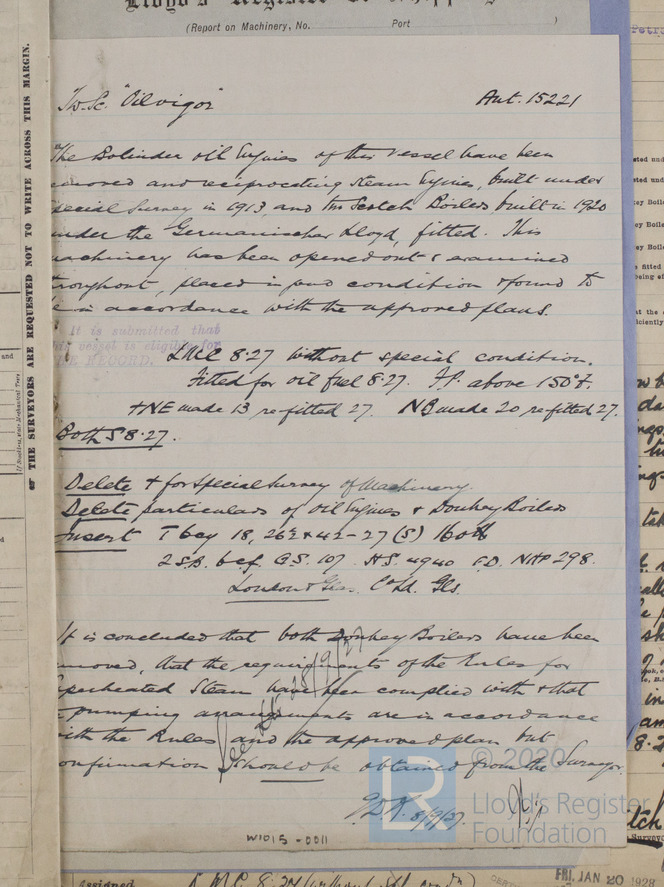 Lloyd's Register
(Report on Machinery, No. Port )
Tw. Sc. "Oilvigor" Ant. 15221
The Bolinder oil Engines of this vessel have been
emoved and reciprocating Steam Engines, built under
pecial Survey in 1913, and two Scotch Boilers built in 1920
under the Germanischer Lloyd, fitted. This
machinery has been opened out & examined
throughout, placed in good condition & found to
be in accordance with the approved plans.
It is submitted that
this vessel is eligible for
THE RECORD.
LMC 8.27 without special condition.
Fitted for oil fuel 8.27. F.P. above 150°F.
+NE made 13 refitted 27. NB made 20 refitted 27.
Both S 8.27.
Delete + for Special Survey of Machinery.
Delete particulars of Oil Engines & Donkey Boilers
Insert T 6cy 18, 26½ & 42 - 27 (S) 160 lb
2 S.B. 6cf. G.S. 107. H.S. 4940 F.D. NHP 298.
London & Glas. Co Ld. Gls.
It is concluded that both Donkey Boilers have been
emoved, that the requirements of the Rules for
uperheated Steam have been complied with & that
pumping arrangements are in accordance
with the Rules and the approved plan but
confirmation should be obtained from the Surveyor.
8/9/27
28/9/27
W1015-0011
© 2020
LR
Lloyd's Register
Foundation
THE SURVEYORS ARE REQUESTED NOT TO WRITE ACROSS THIS MARGIN.
Assigned
FRI. JAN 20 1928